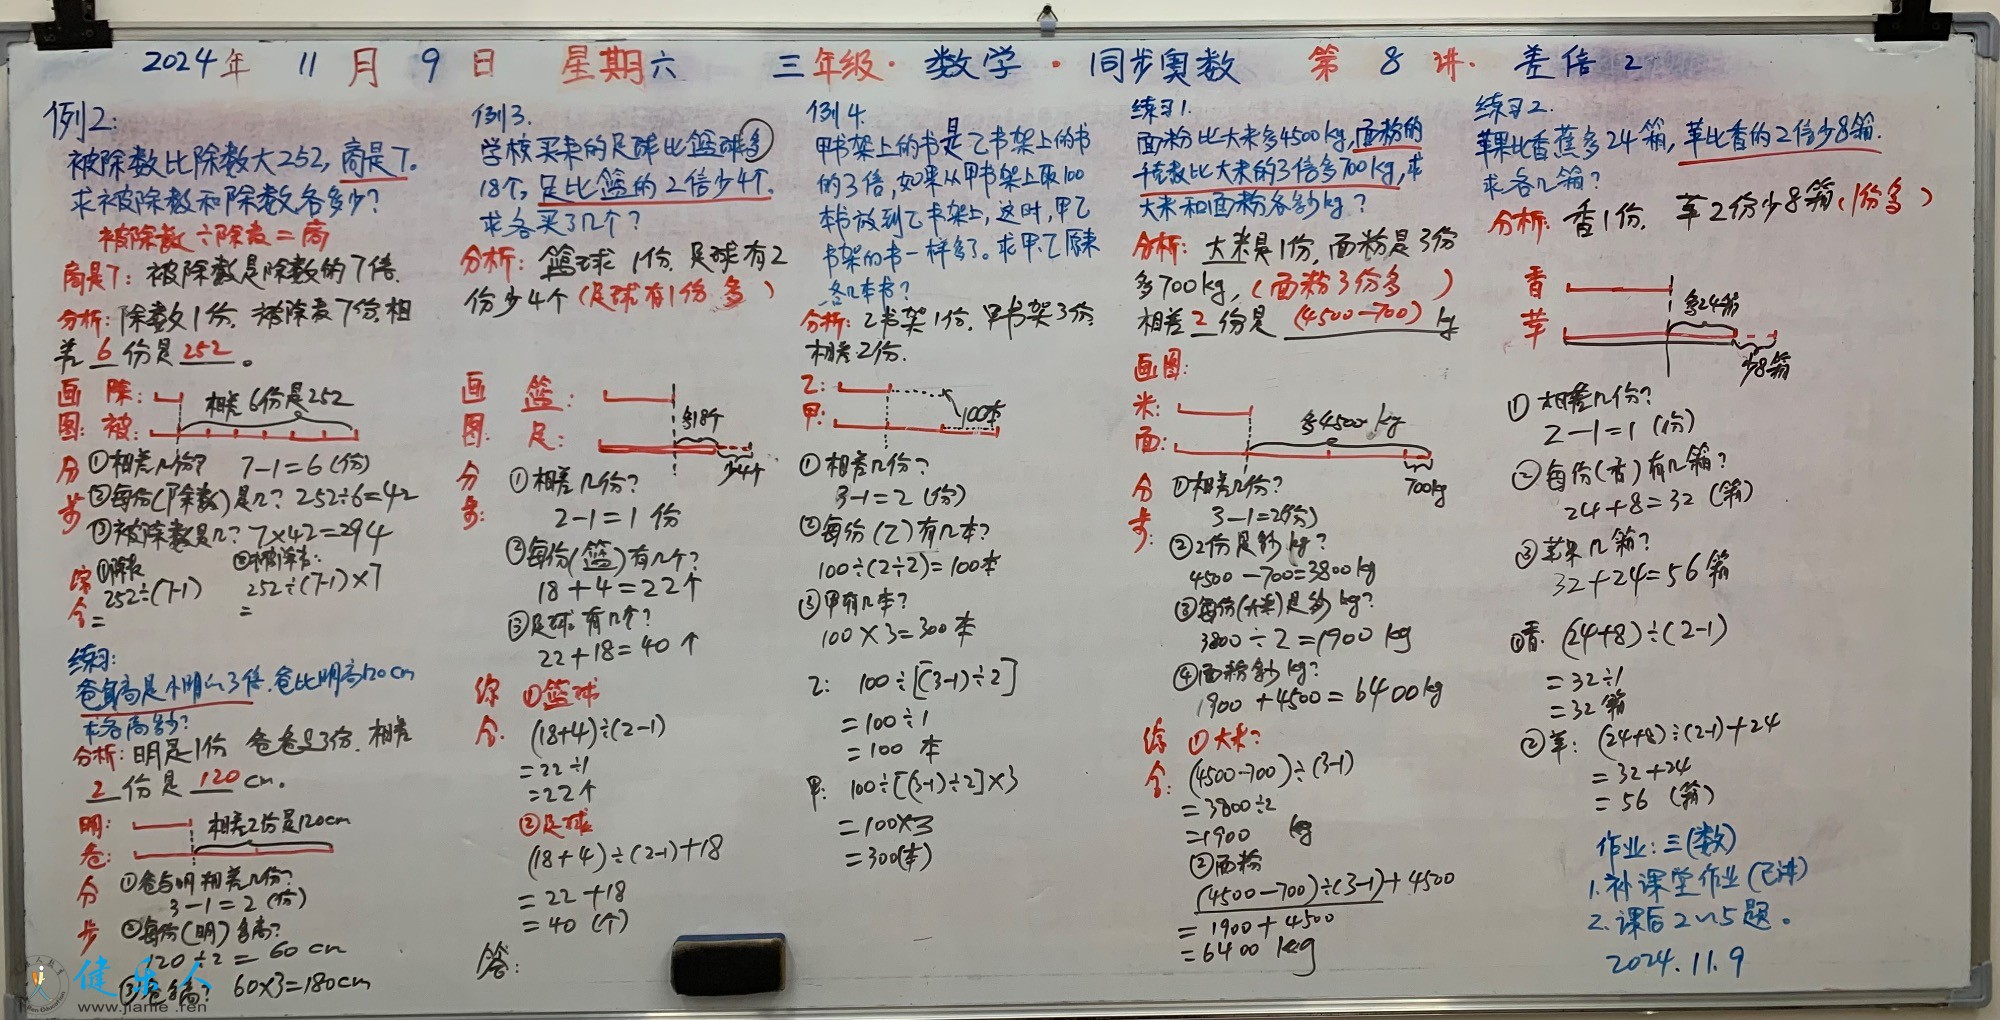 2024年 11月 9日 星期六 三年级·数学·同步奥数 第8讲·差倍2
例2:
被除数比除数大252,商是7。
求被除数和除数各多少?
被除数÷除数=商
商是7:被除数是除数的7倍.
分析:除数1份,被除数7份,相
差 6 份是 252 。
画图
除:
相差6份是252
被:
分步
①相差几份? 7-1=6(份)
②每份(除数)是几? 252÷6=42
③被除数是几? 7×42=294
综合
①除数 ②被除数:
252÷(7-1) 252÷(7-1)×7
= =
练习:
爸身高是小明的3倍,爸比明高120cm
求各高多少?
分析:明是1份 爸爸是3份,相差
2 份是 120 cm。
明:
相差2份是120cm
爸:
分步
①爸与明相差几份?
3-1=2(份)
②每份(明)多高?
120÷2=60cm
③爸多高? 60×3=180cm
例3.
学校买来的足球比篮球多
18个,足比篮的2倍少4个.
求各买了几个?
分析:篮球1份,足球有2
份少4个(足球有1份多)
画图:
篮:
多18个
足:
少4个
分步:
①相差几份?
2-1=1份
②每份(篮)有几个?
18+4=22个
③足球有几个?
22+18=40个
综合.
①篮球
(18+4)÷(2-1)
=22÷1
=22个
②足球
(18+4)÷(2-1)+18
=22+18
=40(个)
答:
例4.
甲书架上的书是乙书架上的书
的3倍,如果从甲书架上取100
本书放到乙书架上,这时,甲乙
书架的书一样多了。求甲、乙原来
各几本书?
分析:乙书架1份,甲书架3份,
相差2份.
乙:
100本
甲:
①相差几份?
3-1=2(份)
②每份(乙)有几本?
100÷(2÷2)=100本
③甲有几本?
100×3=300本
乙: 100÷[(3-1)÷2]
=100÷1
=100本
甲: 100÷[(3-1)÷2]×3
=100×3
=300(本)
练习1.
面粉比大米多4500kg,面粉的
千克数比大米的3倍多700kg,求
大米和面粉各多少kg?
分析:大米是1份,面粉是3份
多700kg,(面粉3份多)
相差 2 份是 (4500-700) kg
画图:
米:
多4500kg
面:
700kg
分步:
①相差几份?
3-1=2(份)
②2份是多少kg?
4500-700=3800kg
③每份(大米)是多少kg?
3800÷2=1900kg
④面粉多少kg?
1900+4500=6400kg
综合:
①大米?
(4500-700)÷(3-1)
=3800÷2
=1900 kg
②面粉
(4500-700)÷(3-1)+4500
=1900+4500
=6400kg
练习2.
苹果比香蕉多24箱,苹比香的2倍少8箱.
求各几箱?
分析:香1份, 苹2份少8箱(1份多)
香
多24箱
苹
少8箱
①相差几份?
2-1=1(份)
②每份(香)有几箱?
24+8=32(箱)
③苹果几箱?
32+24=56箱
①香:(24+8)÷(2-1)
=32÷1
=32箱
②苹:(24+8)÷(2-1)+24
=32+24
=56(箱)
作业:三(数)
1.补课堂作业(已讲)
2.课后2~5题。
2024.11.9
健乐人
www.jianle.ren